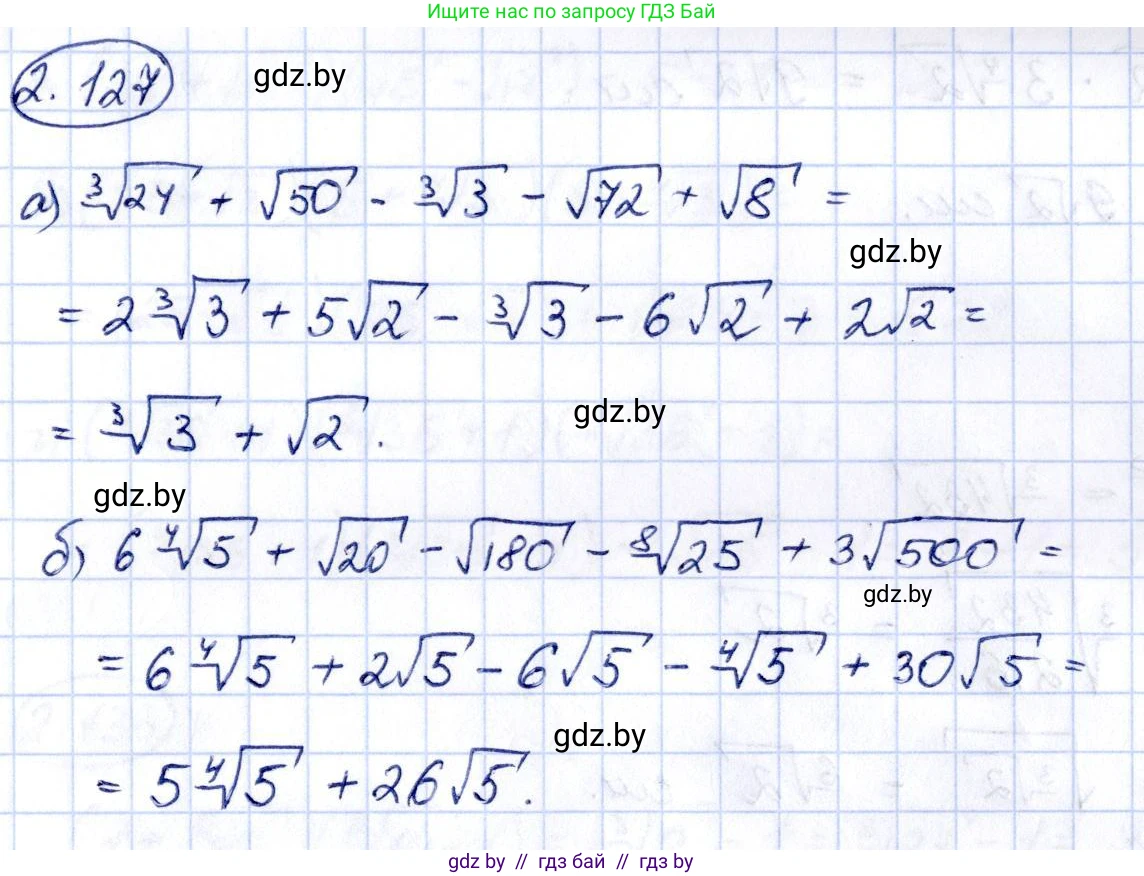 Ищите нас по запросу ГДЗ Бай
2.127 gdz.by
а) ∛24 + √50 - ∛3 - √72 + √8 =
gdz.by
= 2∛3 + 5√2 - ∛3 - 6√2 + 2√2 =
gdz.by
= ∛3 + √2.
gdz.by
б) 6∜5 + √20 - √180 - ⁸√25 + 3√500 =
gdz.by
= 6∜5 + 2√5 - 6√5 - ∜5 + 30√5 =
gdz.by
= 5∜5 + 26√5.
gdz by // гдз бай // гдз by